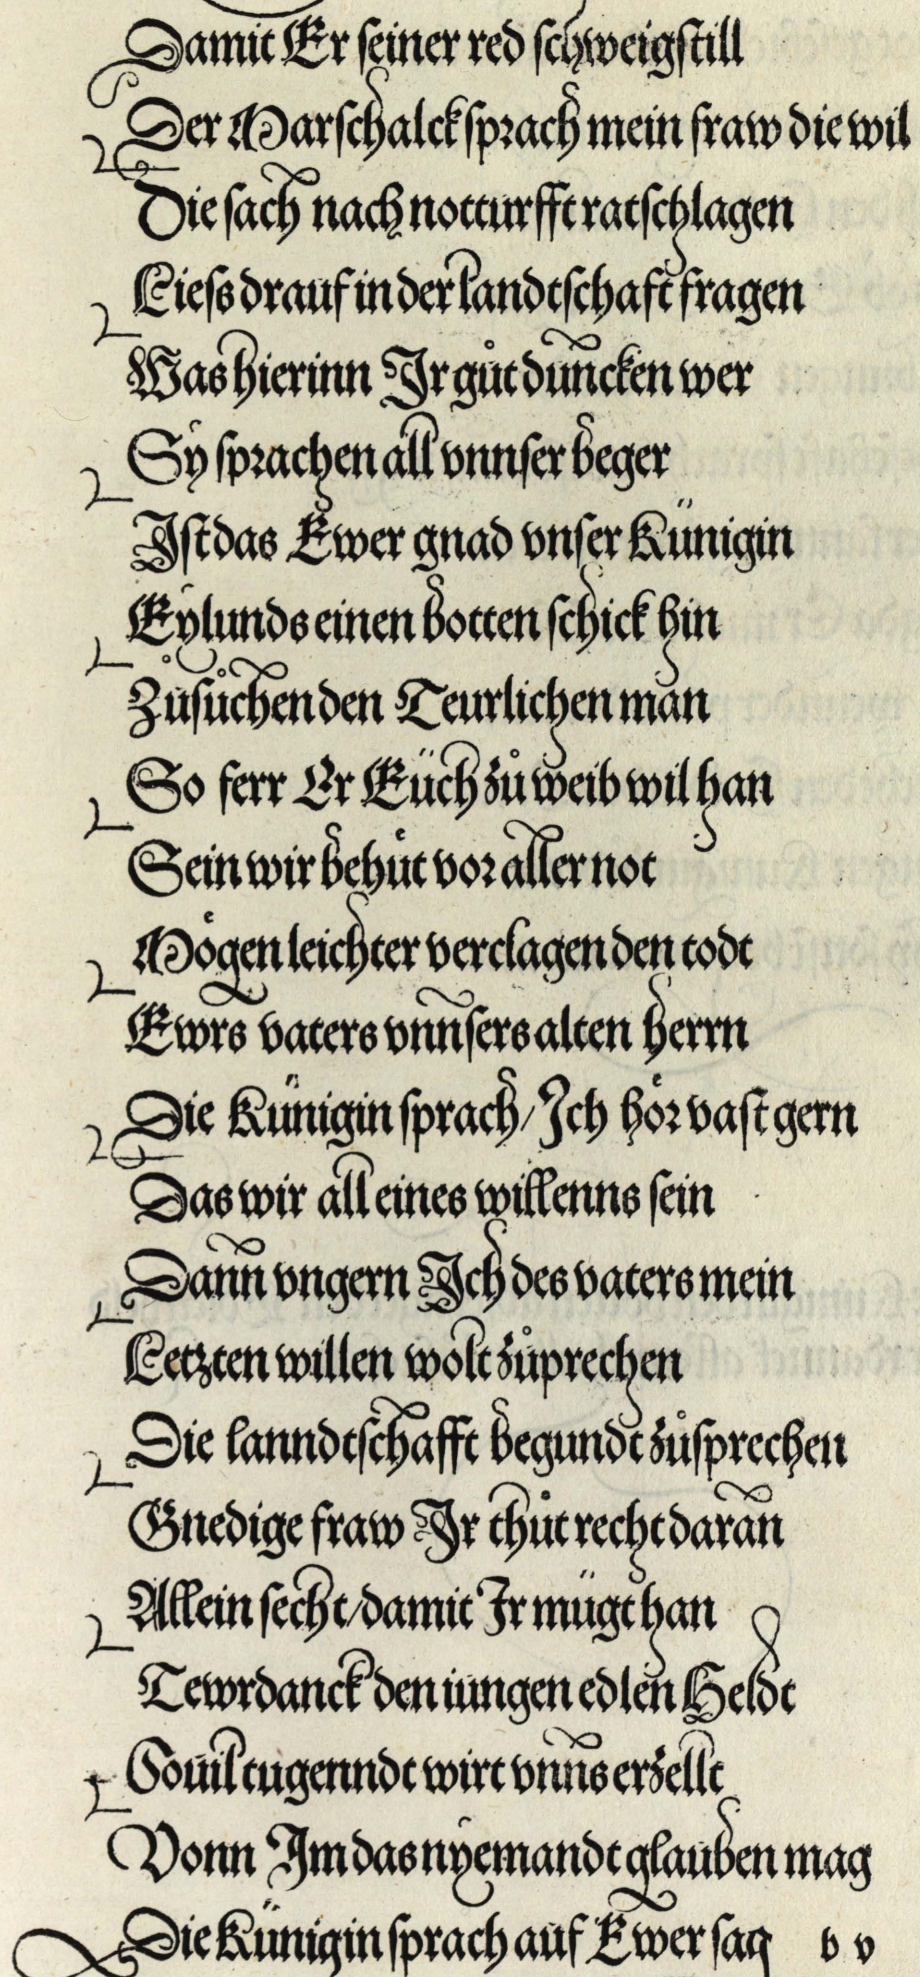 Damit Er seiner red schweigstill
Der Marschalck sprach mein fraw die wil
Die sach nach notturfft ratschlagen
Liess drauf in der landtschaft fragen
Was hierinn Ir gůt duncken wer
Sy sprachen all vnnser beger
Ist das Ewer gnad vnser Künigin
Eylunds einen botten schick hin
Zůsůchen den Teurlichen man
So ferr Er Eüch zů weib wil han
Sein wir behůt vor aller not
Mögen leichter verclagen den todt
Ewrs vaters vnnsers alten herrn
Die Künigin sprach/ Ich hör vast gern
Das wir all eines willenns sein
Dann vngern Ich des vaters mein
Letzten willen wolt zůprechen
Die lanndtschafft begundt zůsprechen
Gnedige fraw Ir thůt recht daran
Allein secht/ damit Ir mügt han
Tewrdanck den iungen edlen Heldt
Souil tugenndt wirt vnns erzellt
Vonn Im das nyemandt glauben mag
Die Künigin sprach auf Ewer sag b v